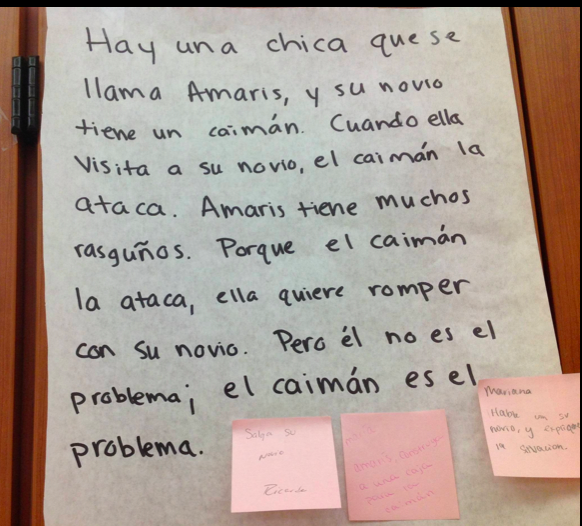 Hay una chica que se
llama Amaris, y su novio
tiene un caimán. Cuando ella
visita a su novio, el caimán la
ataca. Amaris tiene muchos
rasguños. Porque el caimán
la ataca, ella quiere romper
con su novio. Pero él no es el
problema; el caimán es el
problema.
Salga su
novio
Ricardo
amaris,
a una caja
para
caimán
Mariana
Hable con su
novio, y
la situación.